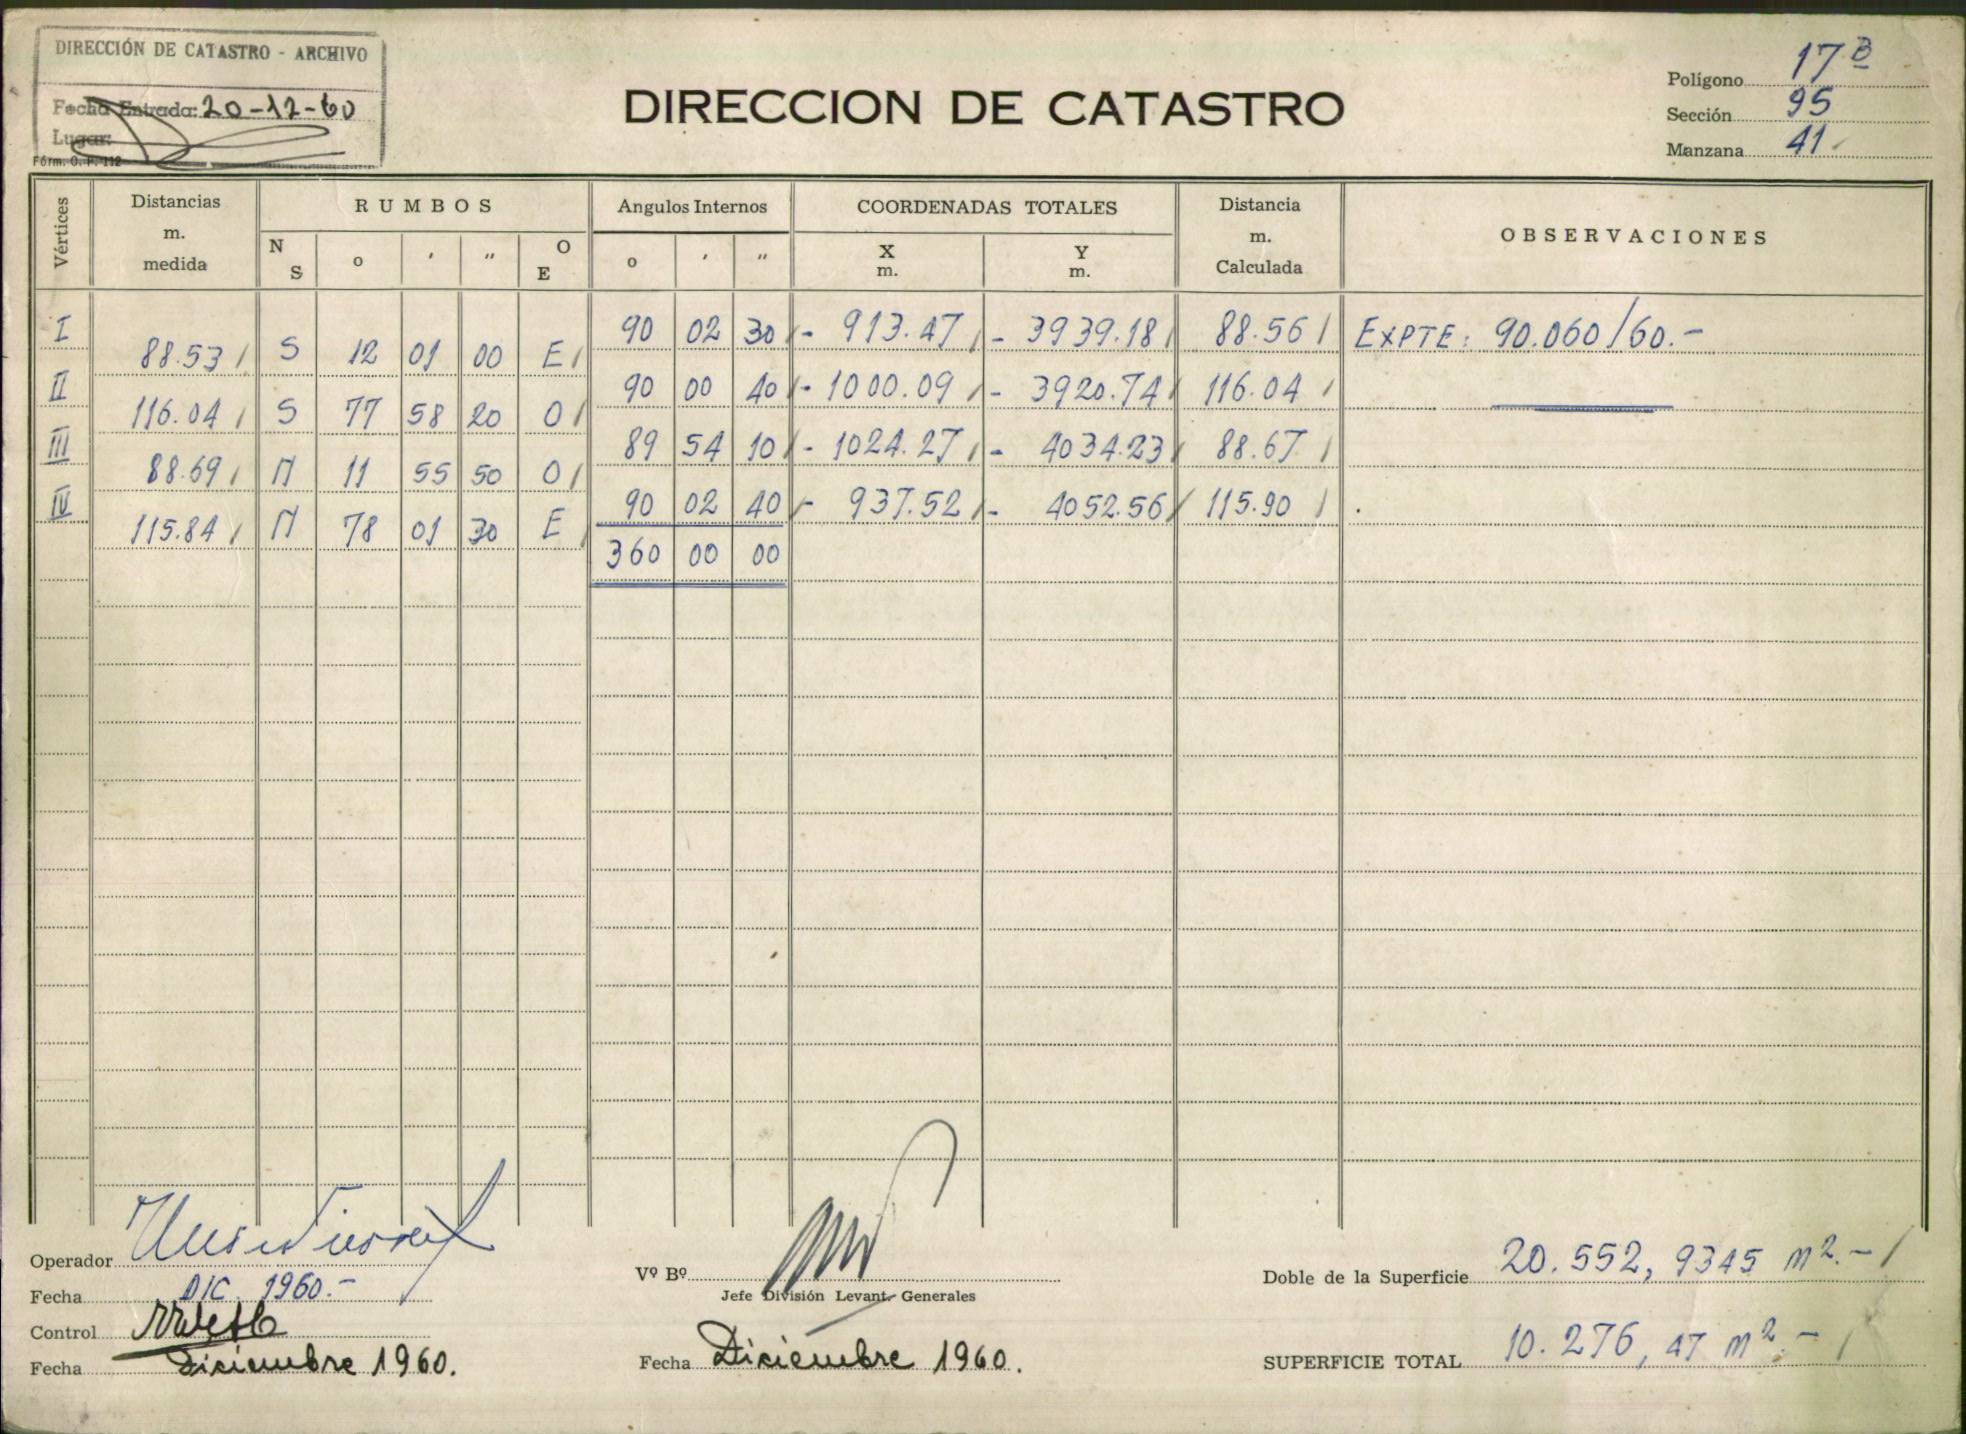 DIRECCIÓN DE CATASTRO - ARCHIVO
Fecha Entrada: 20-12-60
Lugar:
Fórm. O. P. 112
DIRECCION DE CATASTRO
Polígono 17 B
Sección 95
Manzana 41
Vértices Distancias m. medida RUMBOS Angulos Internos COORDENADAS TOTALES Distancia m. Calculada OBSERVACIONES
N S o ' " O E o ' " X m. Y m.
I 90 02 30 - 913.47 - 3939.18 88.56 EXPTE: 90.060/60.-
88.53 S 12 01 00 E
II 90 00 40 - 1000.09 - 3920.74 116.04
116.04 S 77 58 20 O
III 89 54 10 - 1024.27 - 4034.23 88.67
88.69 N 11 55 50 O
IV 90 02 40 - 937.52 - 4052.56 115.90
115.84 N 78 01 30 E
360 00 00
Operador
Fecha DIC. 1960.-
Control
Fecha Diciembre 1960.
Vº Bº
Jefe División Levant. Generales
Fecha Diciembre 1960.
Doble de la Superficie 20.552,9345 m2.-
SUPERFICIE TOTAL 10.276,47 m2.-